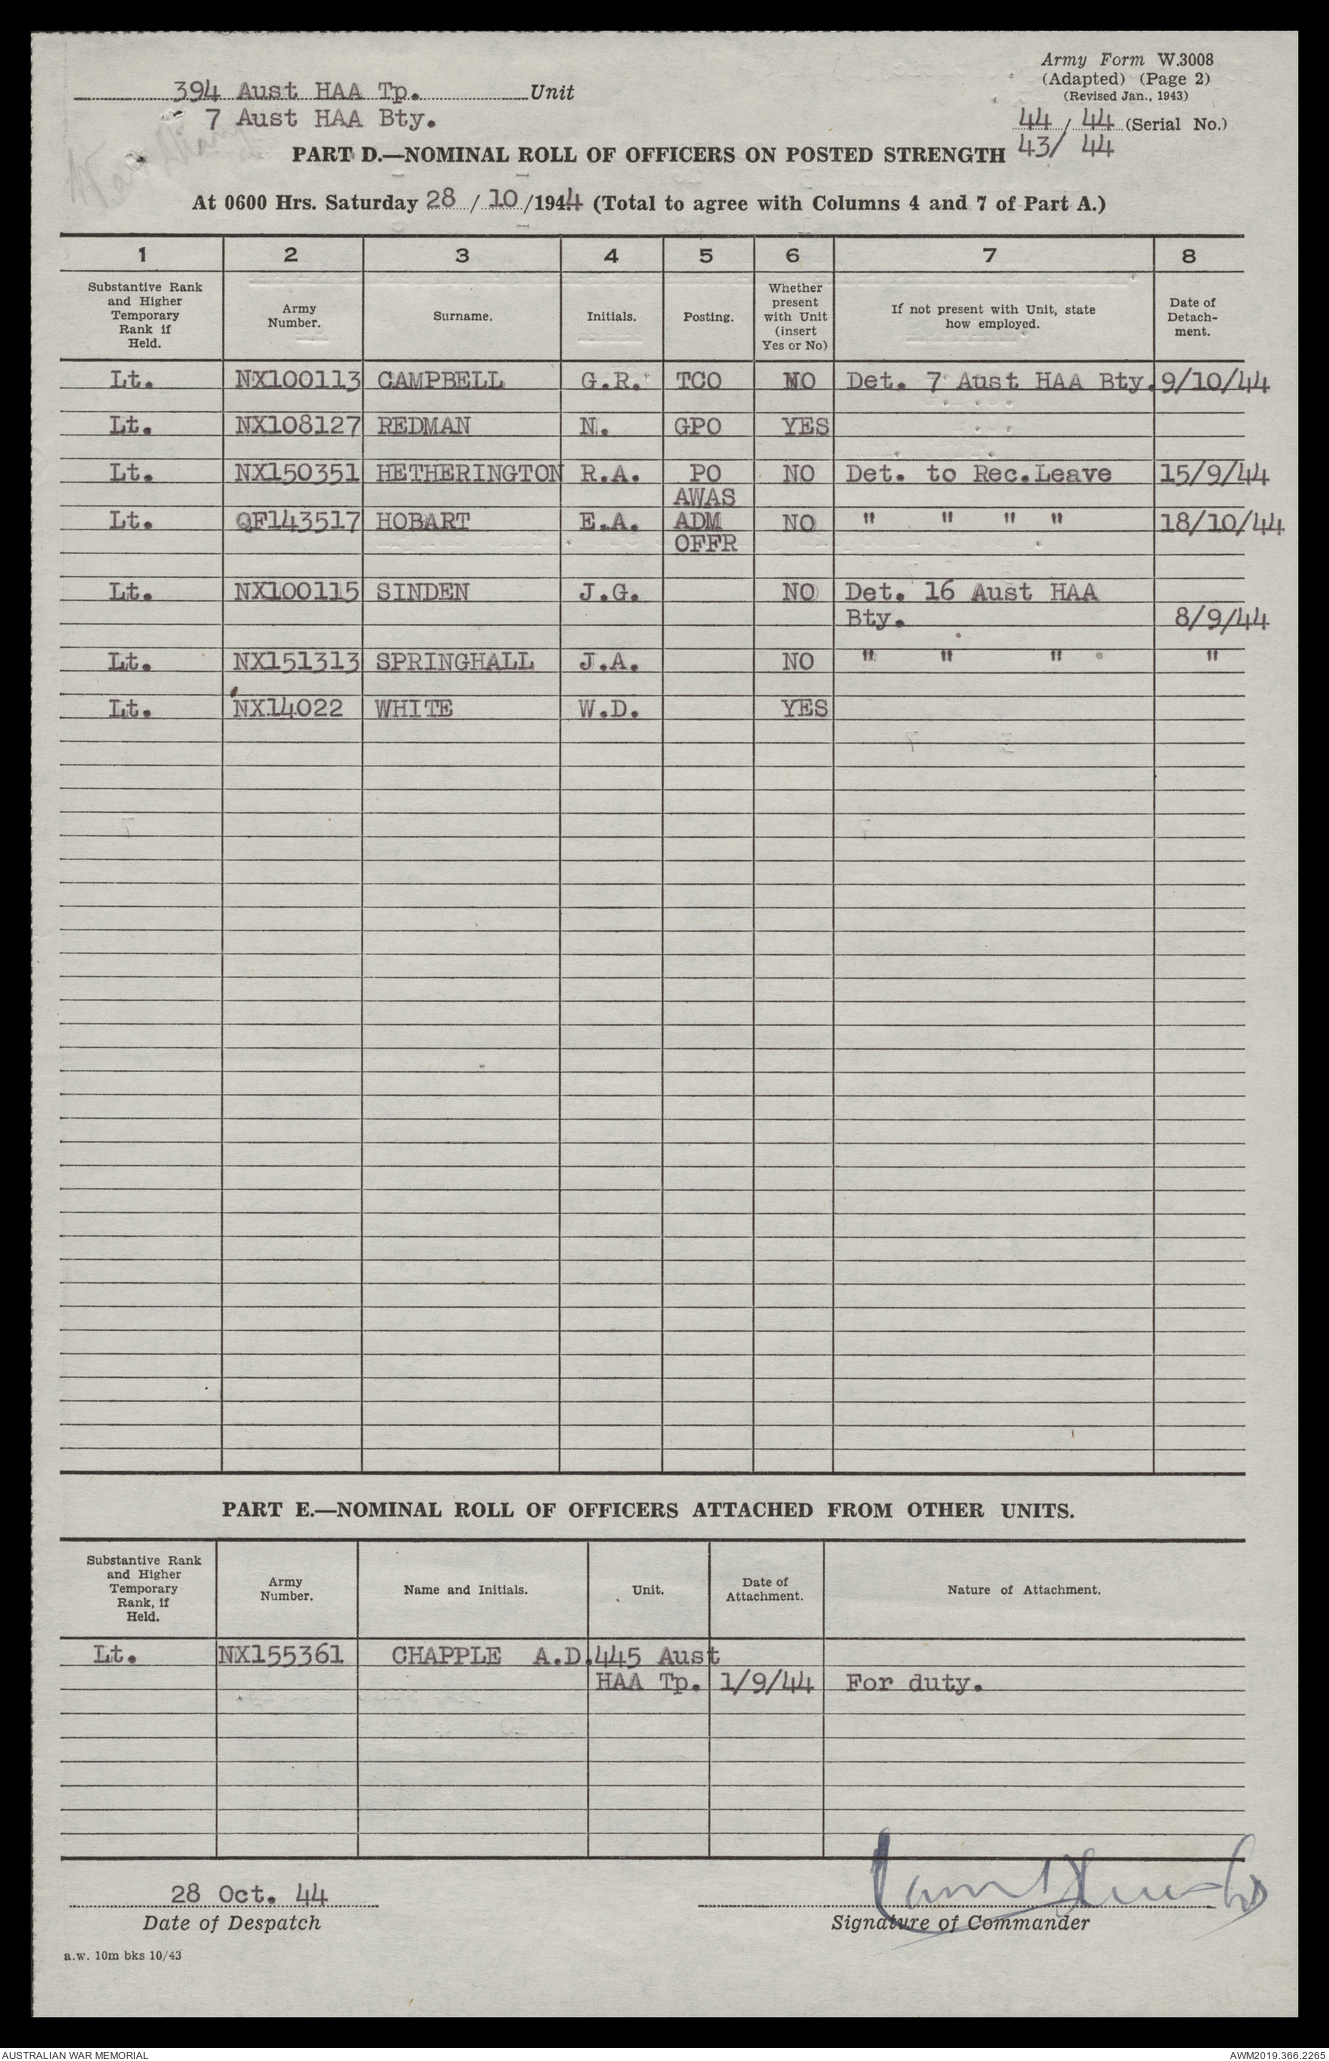 Army Form W.3008
(Adapted) (Page 2)
(Revised Jan., 1943)
394 Aust HAA Tp. Unit
7 Aust HAA Bty.
44 / 44 (Serial No.)
43/ 44
War Diary
PART D.—NOMINAL ROLL OF OFFICERS ON POSTED STRENGTH
At 0600 Hrs. Saturday 28 / 10 /1944 (Total to agree with Columns 4 and 7 of Part A.)
1 2 3 4 5 6 7 8
Substantive Rank and Higher Temporary Rank if Held. Army Number. Surname. Initials. Posting. Whether present with Unit (insert Yes or No) If not present with Unit, state how employed. Date of Detach-ment.
Lt. NX100113 CAMPBELL G.R. TCO NO Det. 7 Aust HAA Bty. 9/10/44
Lt. NX108127 REDMAN N. GPO YES
Lt. NX150351 HETHERINGTON R.A. PO NO Det. to Rec.Leave 15/9/44
AWAS
Lt. QF143517 HOBART E.A. ADM NO " " " " 18/10/44
OFFR
Lt. NX100115 SINDEN J.G. NO Det. 16 Aust HAA
Bty. 8/9/44
Lt. NX151313 SPRINGHALL J.A. NO " " " "
Lt. NX14022 WHITE W.D. YES
PART E.—NOMINAL ROLL OF OFFICERS ATTACHED FROM OTHER UNITS.
Substantive Rank and Higher Temporary Rank, if Held. Army Number. Name and Initials. Unit. Date of Attachment. Nature of Attachment.
Lt. NX155361 CHAPPLE A.D. 445 Aust
HAA Tp. 1/9/44 For duty.
28 Oct. 44
Date of Despatch
Signature of Commander
a.w. 10m bks 10/43
AUSTRALIAN WAR MEMORIAL
AWM2019.366.2265